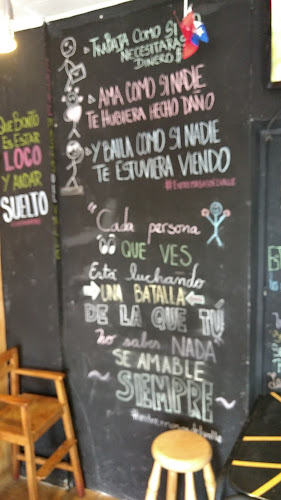 QUE BONITO
ES ESTAR
LOCO
Y ANDAR
SUELTO
TRABAJA COMO SI
NECESITARAS
DINERO!!
AMA COMO SI NADIE
TE HUBIERA HECHO DAÑO
Y BAILA COMO SI NADIE
TE ESTUVIERA VIENDO
"Cada persona
QUE VES,
Está luchando
UNA BATALLA
DE LA QUE TÚ
No sabes NADA
SE AMABLE
~SIEMPRE~